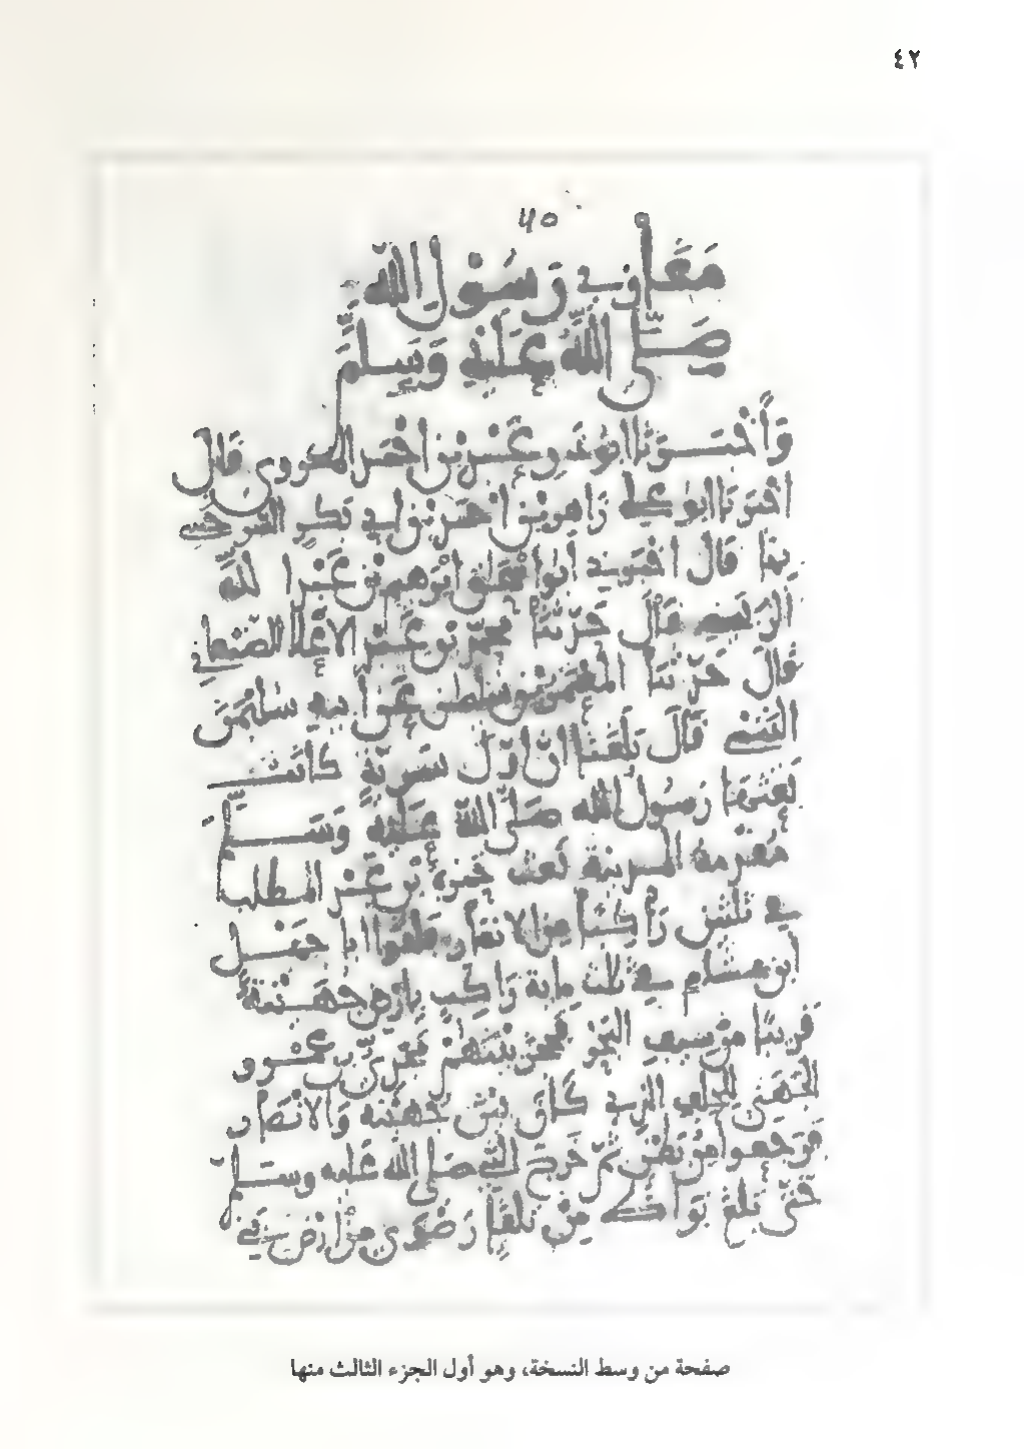 ٤٢
٧٥
مَغَازِي رَسُوْلِ اللهِ
صَلَّى اللهُ عَلَيْهِ وَسَلَّمَ
وَأَخْبَرَنَا ابُو بن احمد الهروي قال
اخبرنا ابو علي زاهر بن احمد بن ابي بكر السرخسي
بها قال اخبرني ابو اسحق ابرهيم بن عبد الله
الزبيبي قال حدثنا محمد بن عبد الاعلا الصنعاني
قال حدثنا المعتمر بن سليمن عن ابيه سليمن
التيمي قال بلغنا ان اول سرية كانت
بعثها رسول الله صلى الله عليه وسلم
مقدمه المدينة بعث حمزة بن عبد المطلب
في ثلثين راكبا من الانصار فلقوا ابا جهل
ابن هشام في ثلث ماية راكب بارض جهينة
قريبا من سيف البحر فحجز بينهم مجدي بن عمرو
الجهني للحلف الذي كان بين جهينه والانصار
فرجعوا من نخلٍ ثم خرج النبي صلى الله عليه وسلم
حتى بلغ بواط من تلقا رضوى من ارض بني
صفحة من وسط النسخة، وهو أول الجزء الثالث منها